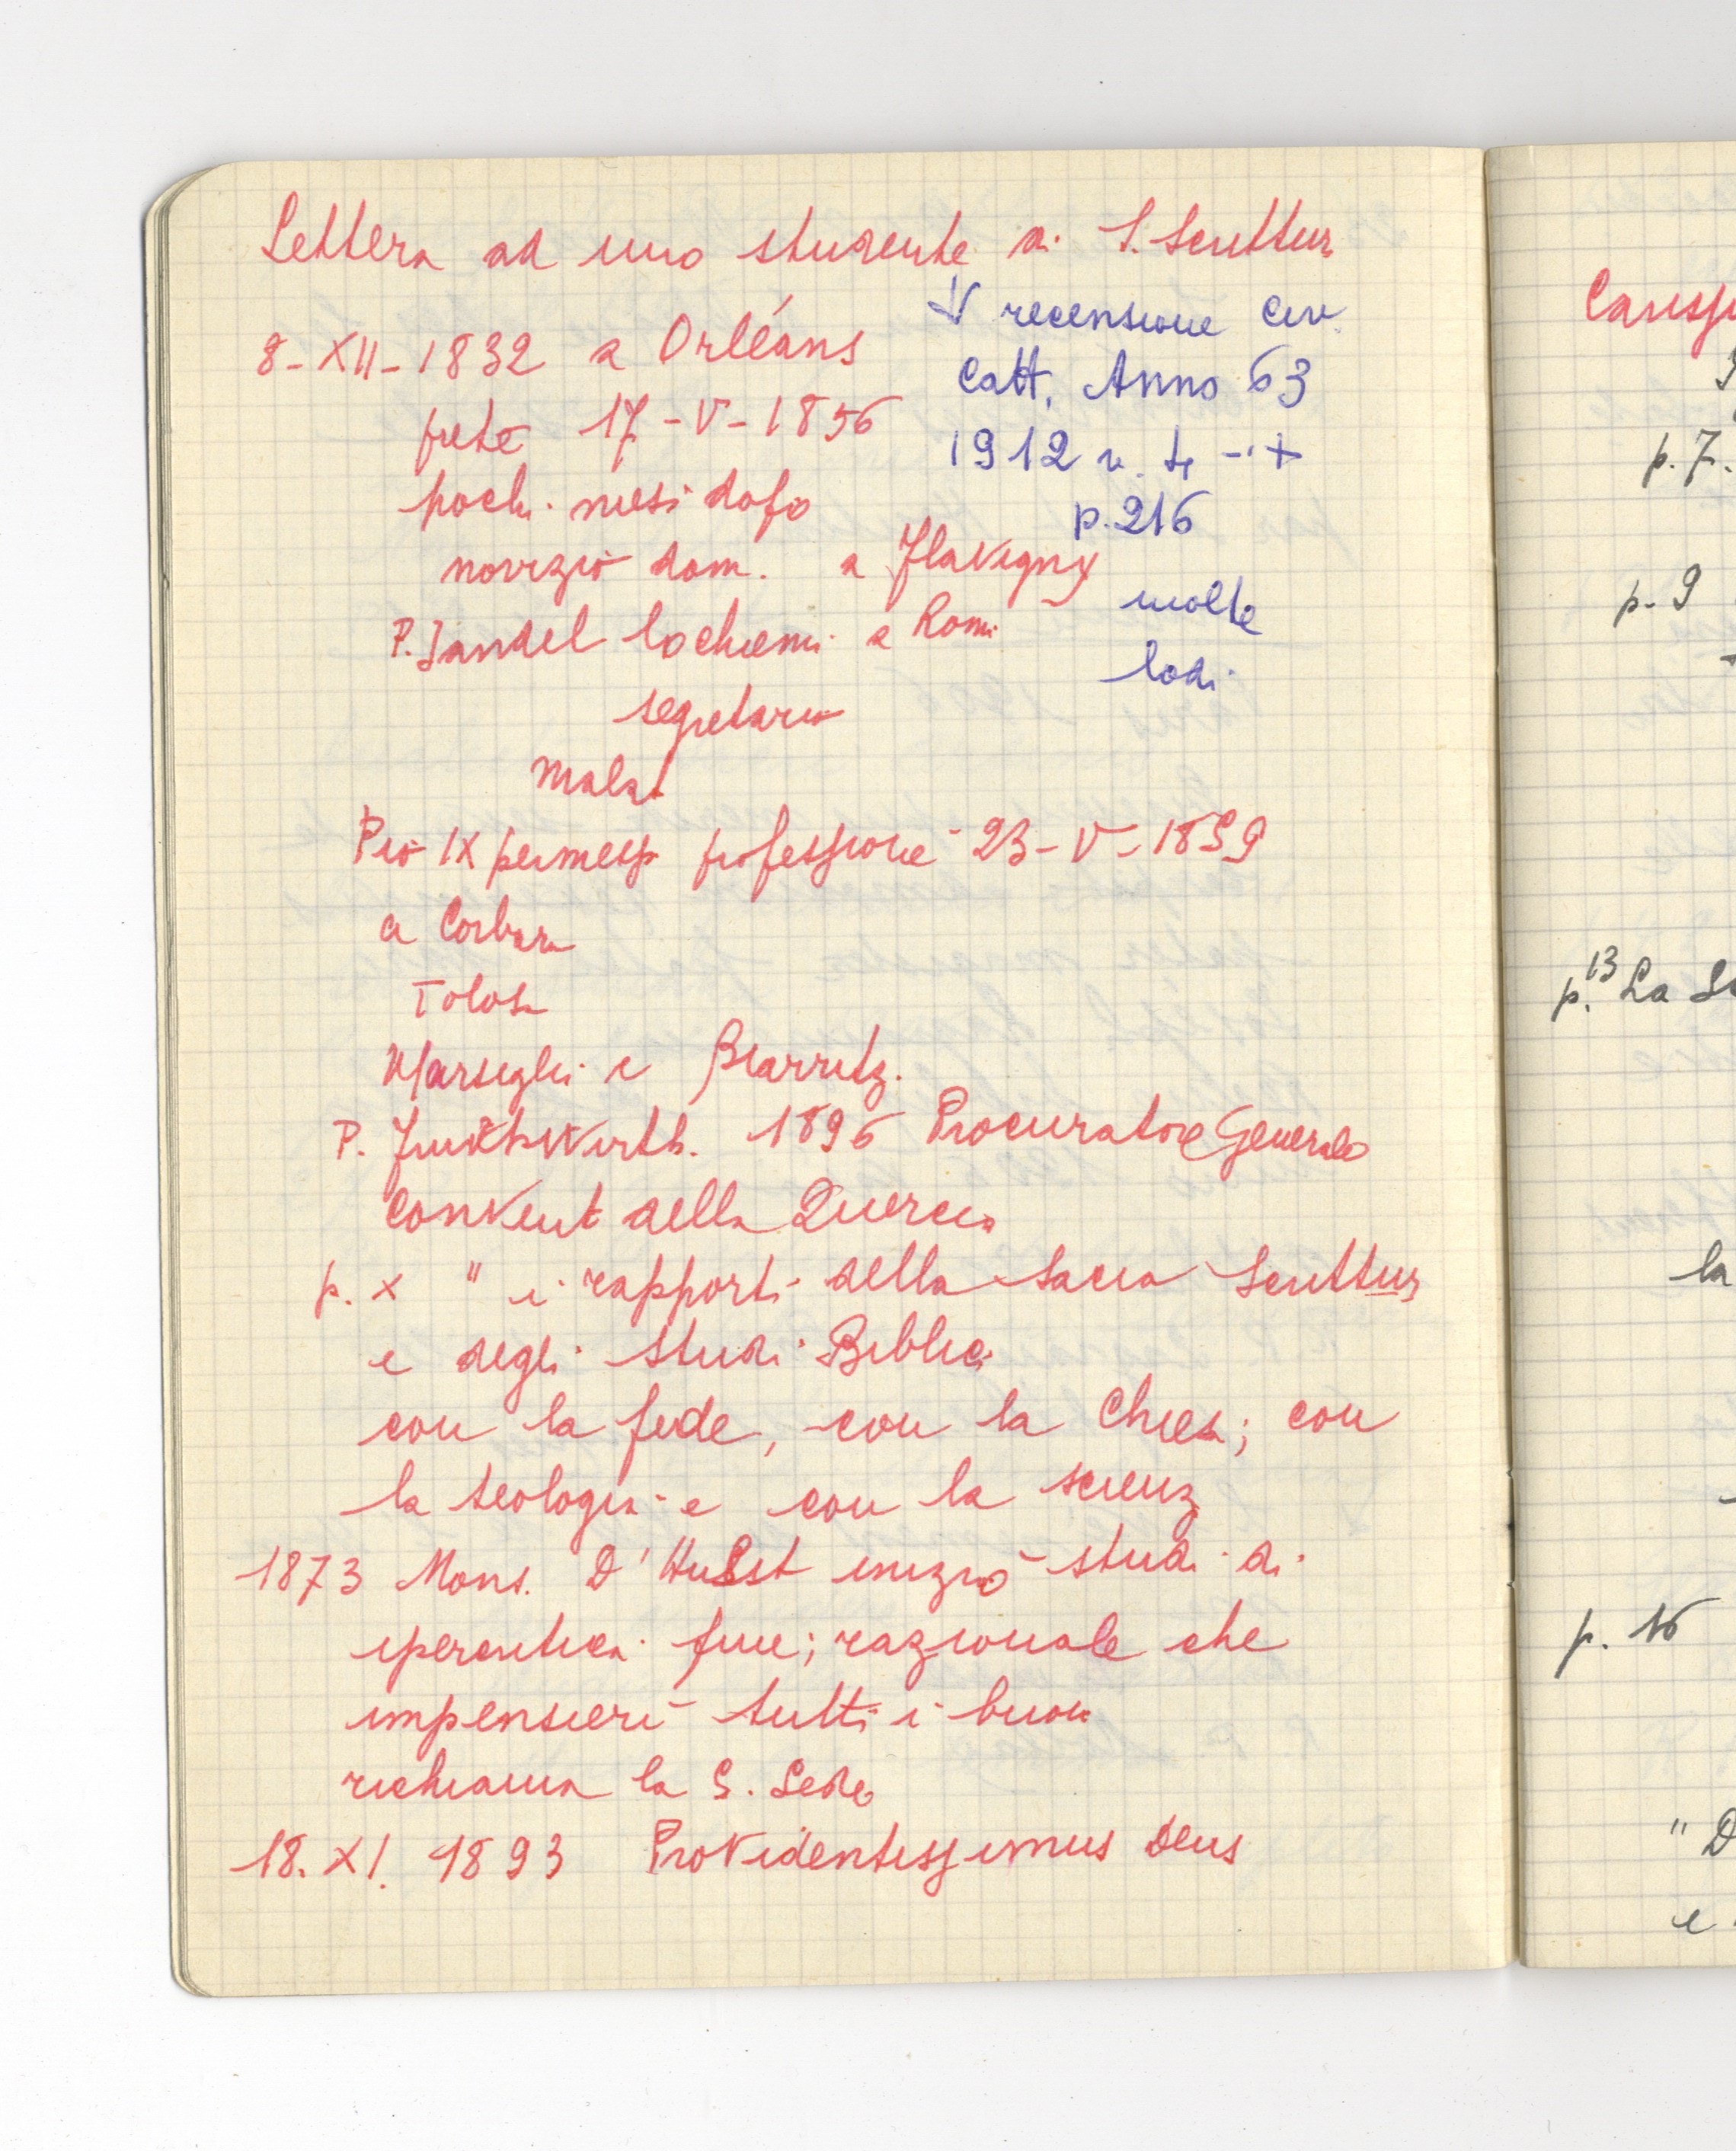 Lettera ad uno studente di S. Scrittura
V recensione Civ.
Catt. Anno 63
1912 v. 4
p. 216
molte
lodi
8-XII-1832 a Orléans
prete 17-V-1856
pochi mesi dopo
novizio dom. a Flavigny
P. Jandel lo chiemi a Roma
segretario
malat
Pio IX permess professione 23-V-1859
a Corbara
Tolosa
Marseglia e Biarritz.
P. Früthwirth. 1896 Procuratore Generale
Convent della Quercia
p. x " i rapporti della Sacra Scrittura
e degli studi Biblici
con la fede, con la Chiesa; con
la teologia e con la scienza
1873 Mons. D'Hulst iniziò studi di
ipercritica fine; razionale che
impensierì tutti i buoni
richiama la S. Sede
18. XI. 1893 Providentissimus Deus
p. 7.
p. 9
p. 13 La
la
p. 16
" D
e